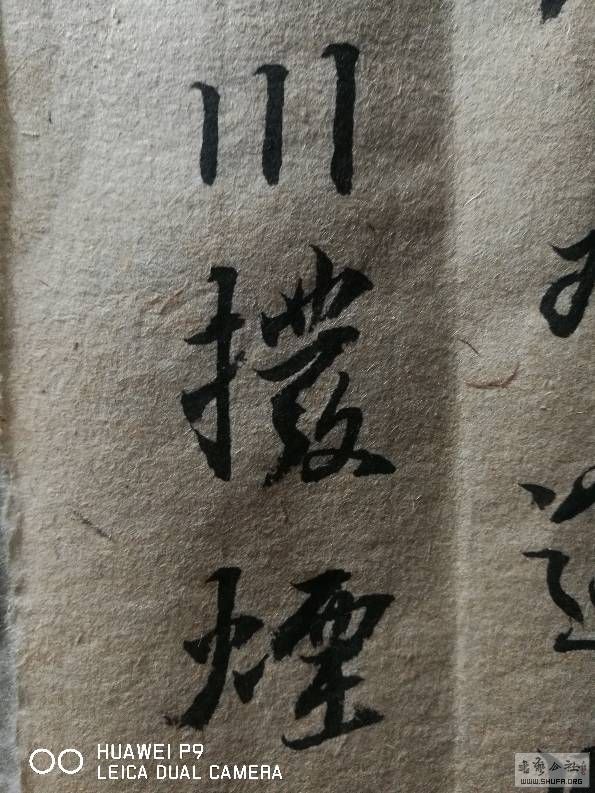 川撥煙
HUAWEI P9
LEICA DUAL CAMERA
WWW.SHUFA.ORG